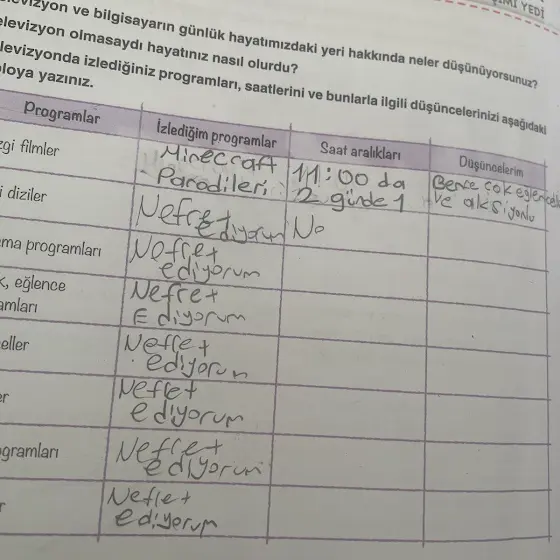 YEDİ
televizyon ve bilgisayarın günlük hayatımızdaki yeri hakkında neler düşünüyorsunuz?
elevizyon olmasaydı hayatınız nasıl olurdu?
levizyonda izlediğiniz programları, saatlerini ve bunlarla ilgili düşüncelerinizi aşağıdaki
bloya yazınız.
Programlar İzlediğim programlar Saat aralıkları Düşüncelerim
zgi filmler Minecraft Parodileri 11:00 da 2 günde 1 Bence çok eğlenceli ve aksiyonlu
i diziler Nefret ediyorum No
ma programları Nefret ediyorum
k, eğlence
amları Nefret Ediyorum
eller Nefret ediyorum
er Nefret ediyorum
ogramları Nefret ediyorum
r Nefret ediyorum